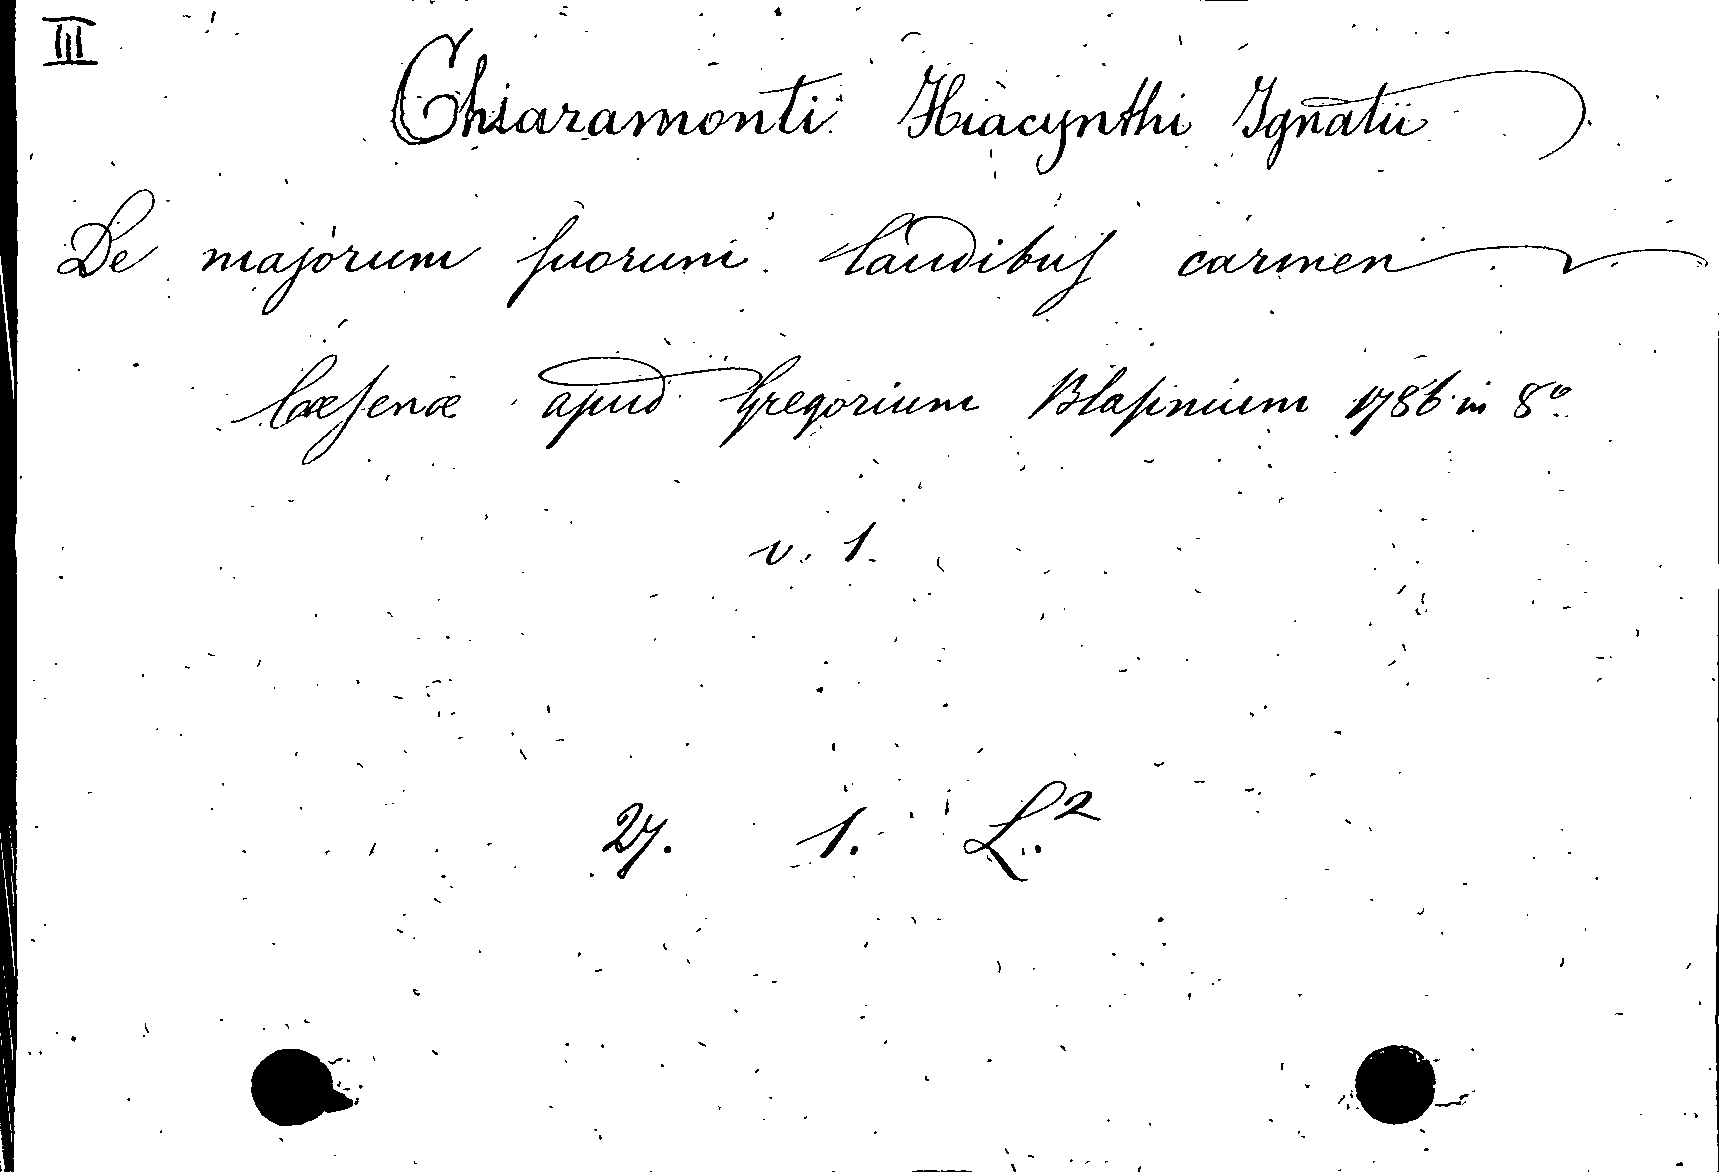 III
Chiaramonti Hiacynthi Ignatii
De majorum suorum laudibus carmen
Cæsenæ apud Gregorium Blasinium 1786 in 8º
v. 1.
27. 1. L.²